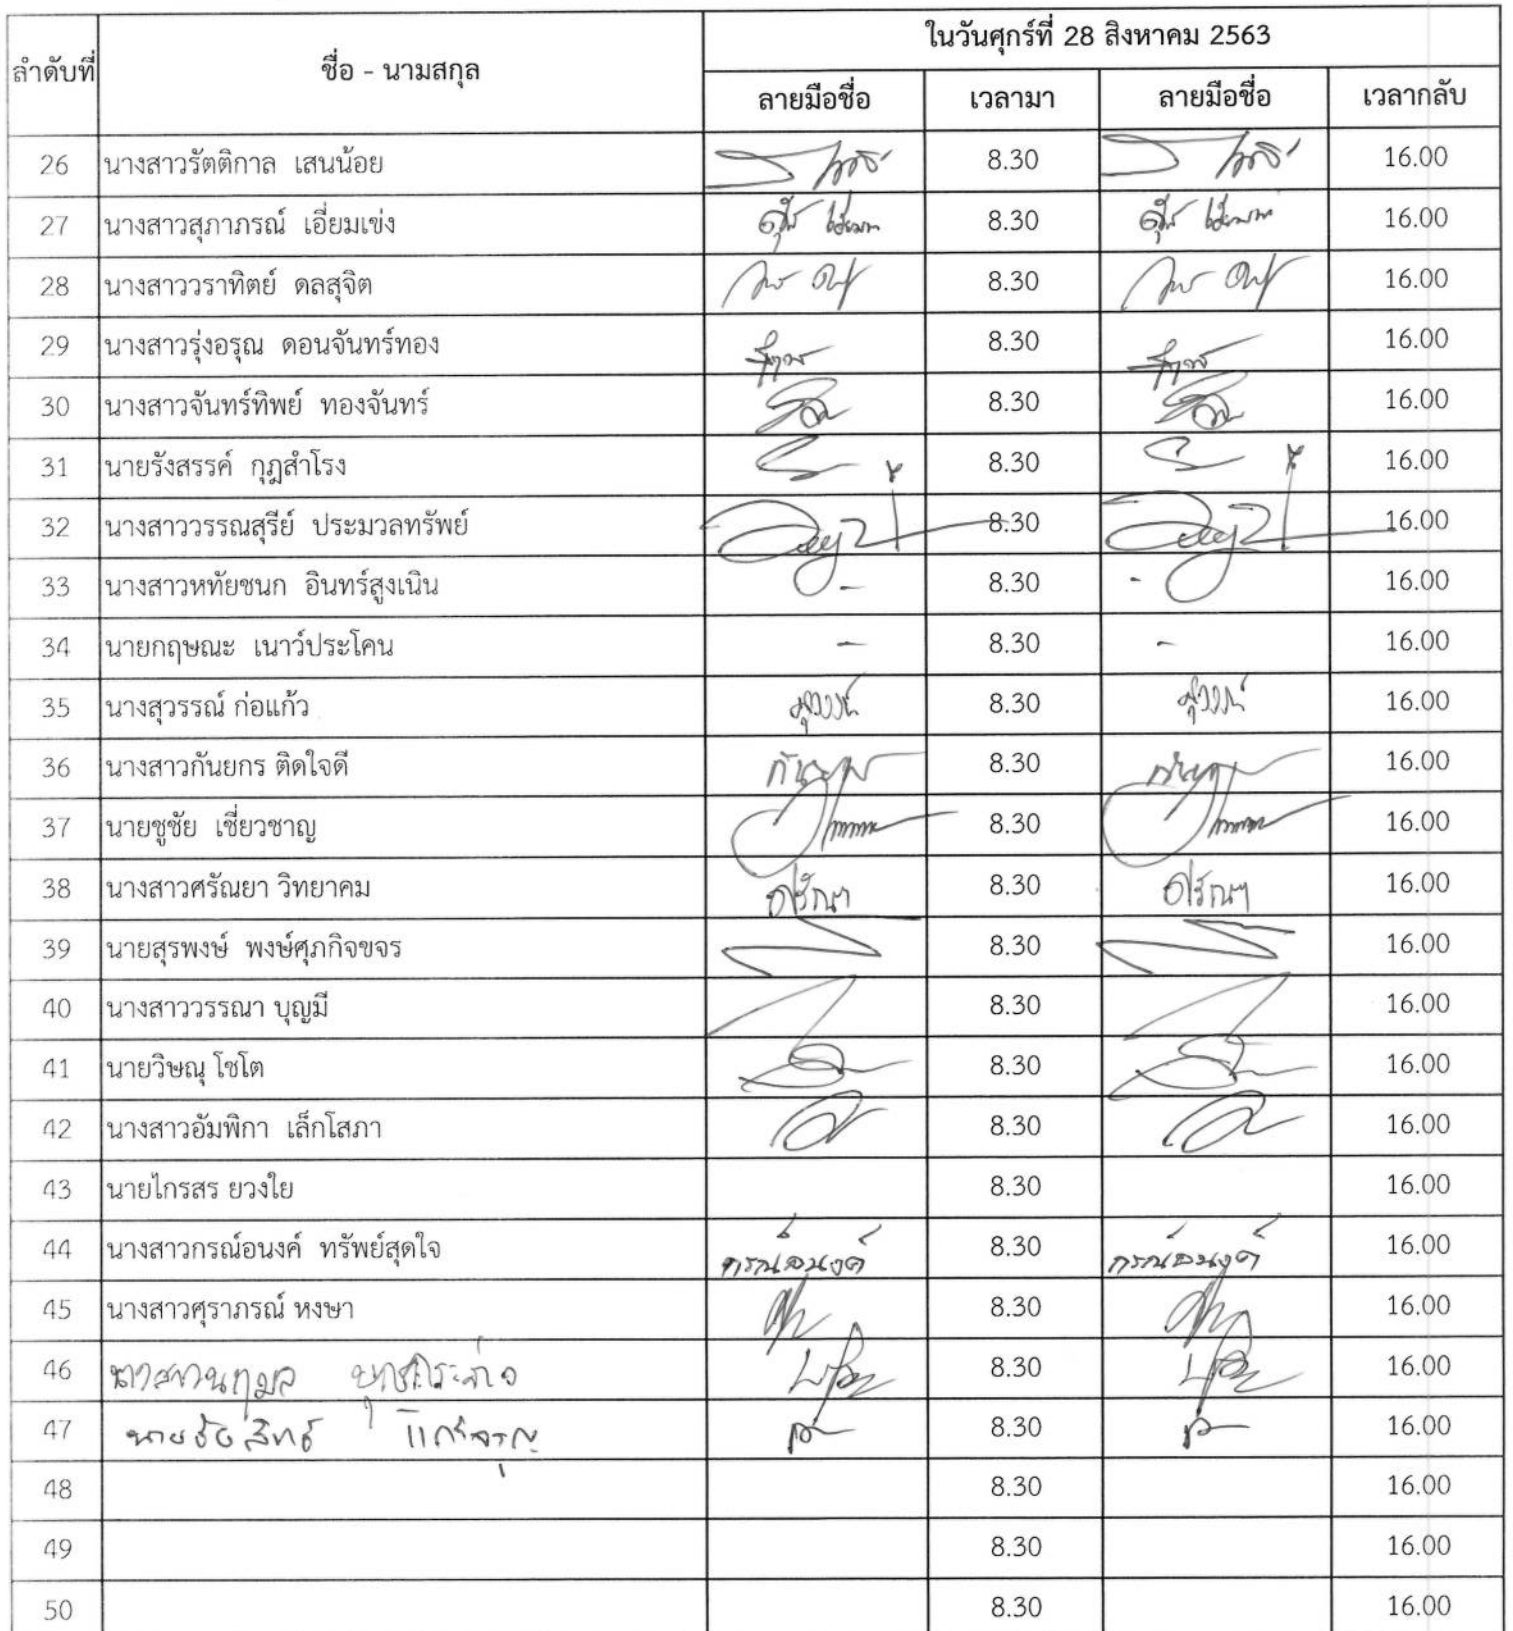 ลำดับที่ ชื่อ - นามสกุล ในวันศุกร์ที่ 28 สิงหาคม 2563
ลายมือชื่อ เวลามา ลายมือชื่อ เวลากลับ
26 นางสาวรัตติกาล เสนน้อย 8.30 16.00
27 นางสาวสุภาภรณ์ เอี่ยมเข่ง 8.30 16.00
28 นางสาววราทิตย์ ดลสุจิต 8.30 16.00
29 นางสาวรุ่งอรุณ ดอนจันทร์ทอง 8.30 16.00
30 นางสาวจันทร์ทิพย์ ทองจันทร์ 8.30 16.00
31 นายรังสรรค์ กุฎสำโรง 8.30 16.00
32 นางสาววรรณสุรีย์ ประมวลทรัพย์ 8.30 16.00
33 นางสาวหทัยชนก อินทร์สูงเนิน - 8.30 - 16.00
34 นายกฤษณะ เนาว์ประโคน - 8.30 - 16.00
35 นางสุวรรณ์ ก่อแก้ว สุวรรณ์ 8.30 สุวรรณ์ 16.00
36 นางสาวกันยกร ติดใจดี 8.30 16.00
37 นายชูชัย เชี่ยวชาญ 8.30 16.00
38 นางสาวศรัณยา วิทยาคม ศรัณยา 8.30 ศรัณยา 16.00
39 นายสุรพงษ์ พงษ์ศุภกิจขจร 8.30 16.00
40 นางสาววรรณา บุญมี 8.30 16.00
41 นายวิษณุ โชโต 8.30 16.00
42 นางสาวอัมพิกา เล็กโสภา 8.30 16.00
43 นายไกรสร ยวงใย 8.30 16.00
44 นางสาวกรณ์อนงค์ ทรัพย์สุดใจ กรณ์อนงค์ 8.30 กรณ์อนงค์ 16.00
45 นางสาวศุราภรณ์ หงษา 8.30 16.00
46 8.30 16.00
47 8.30 16.00
48 8.30 16.00
49 8.30 16.00
50 8.30 16.00